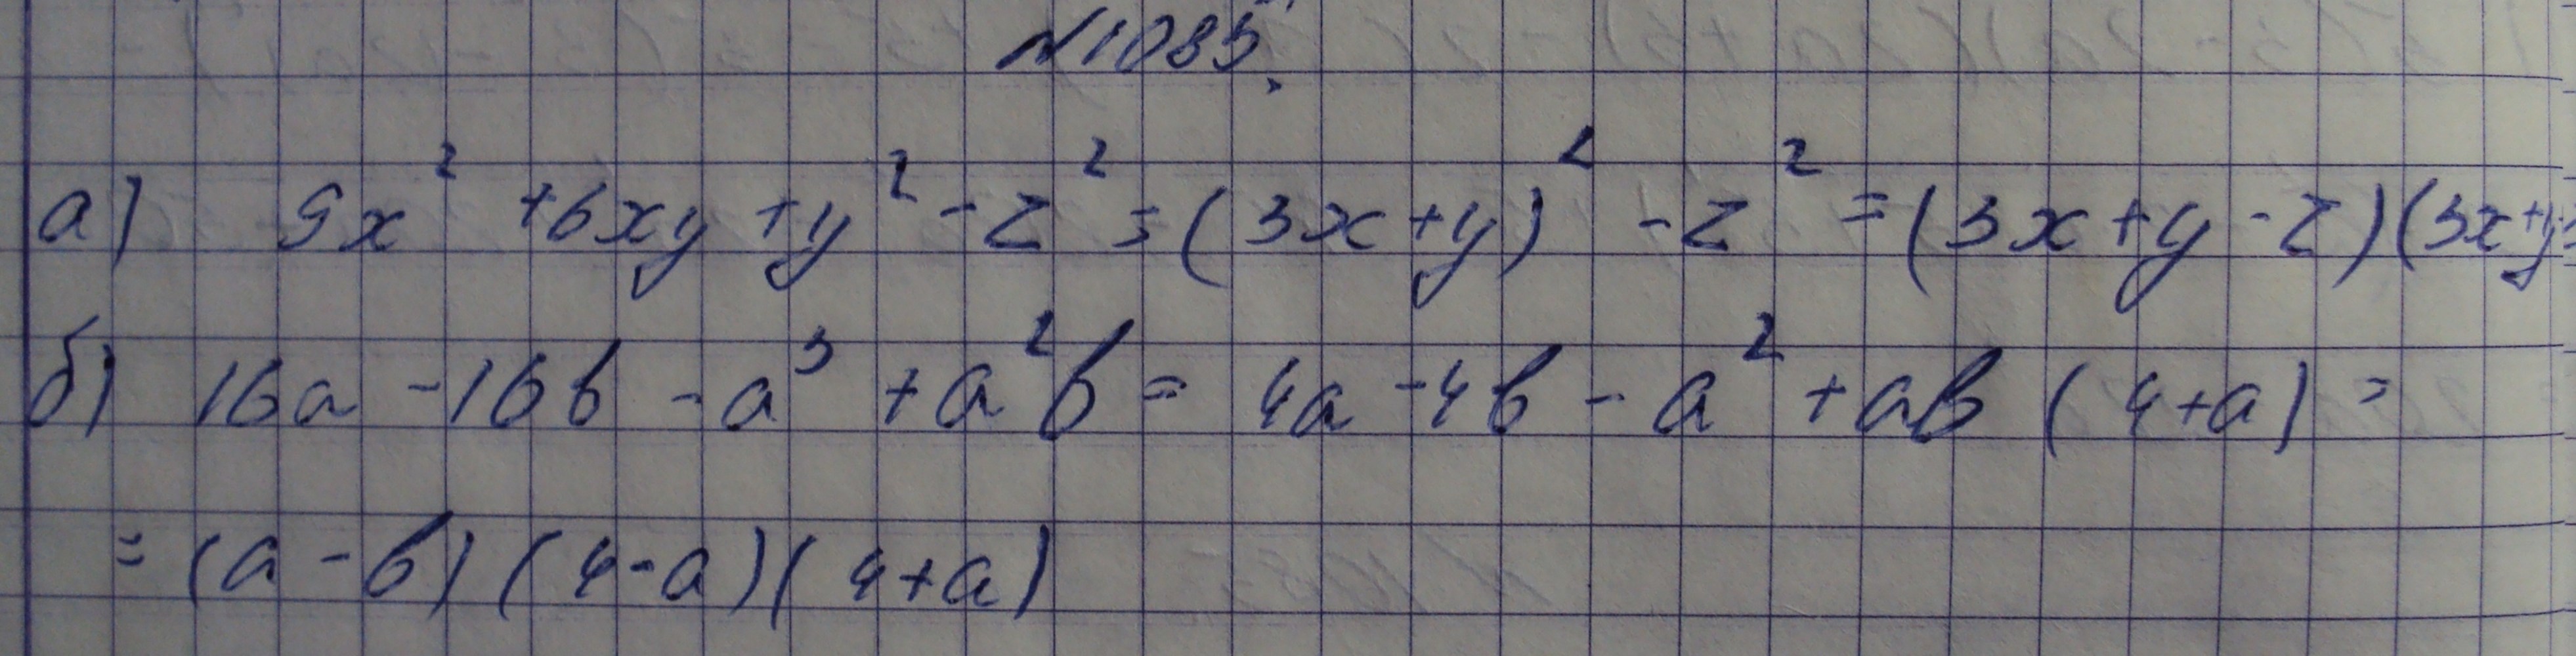 №1085.
а) 9x² + 6xy + y² - z² = (3x + y)² - z² = (3x + y - z)(3x + y
б) 16a - 16b - a³ + a²b = 4a - 4b - a² + ab (4 + a) =
= (a - b) (4 - a)(4 + a)